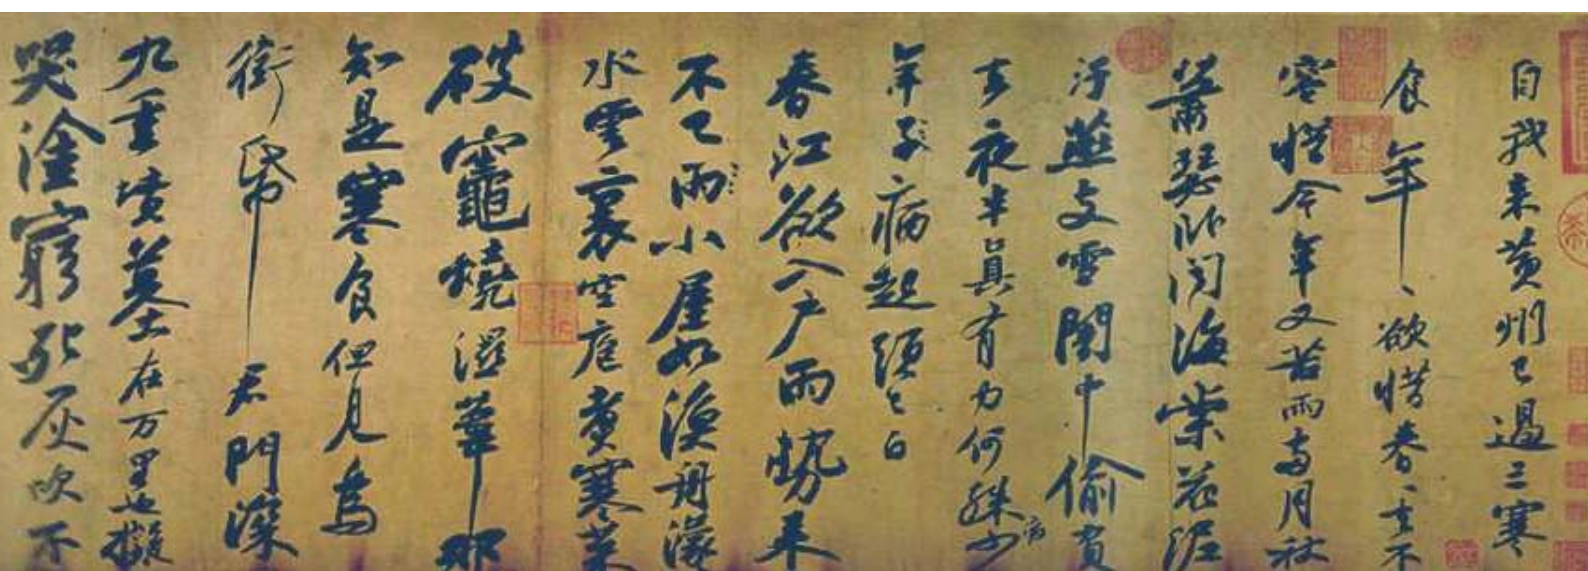 自我来黄州已過三寒
食年、欲惜春、去不
容惜今年又苦雨兩月秋
蕭瑟卧聞海棠花泥
汙燕支雪闇中偷負
去夜半真有力何殊病少
年子病起須已白
春江欲入戶雨勢来
不已雨小屋如漁舟濛
水雲裏空庖煮寒菜
破竈燒濕葦那
知是寒食但見烏
銜帋君門深
九重墳墓在万里也擬
哭塗窮死灰吹不